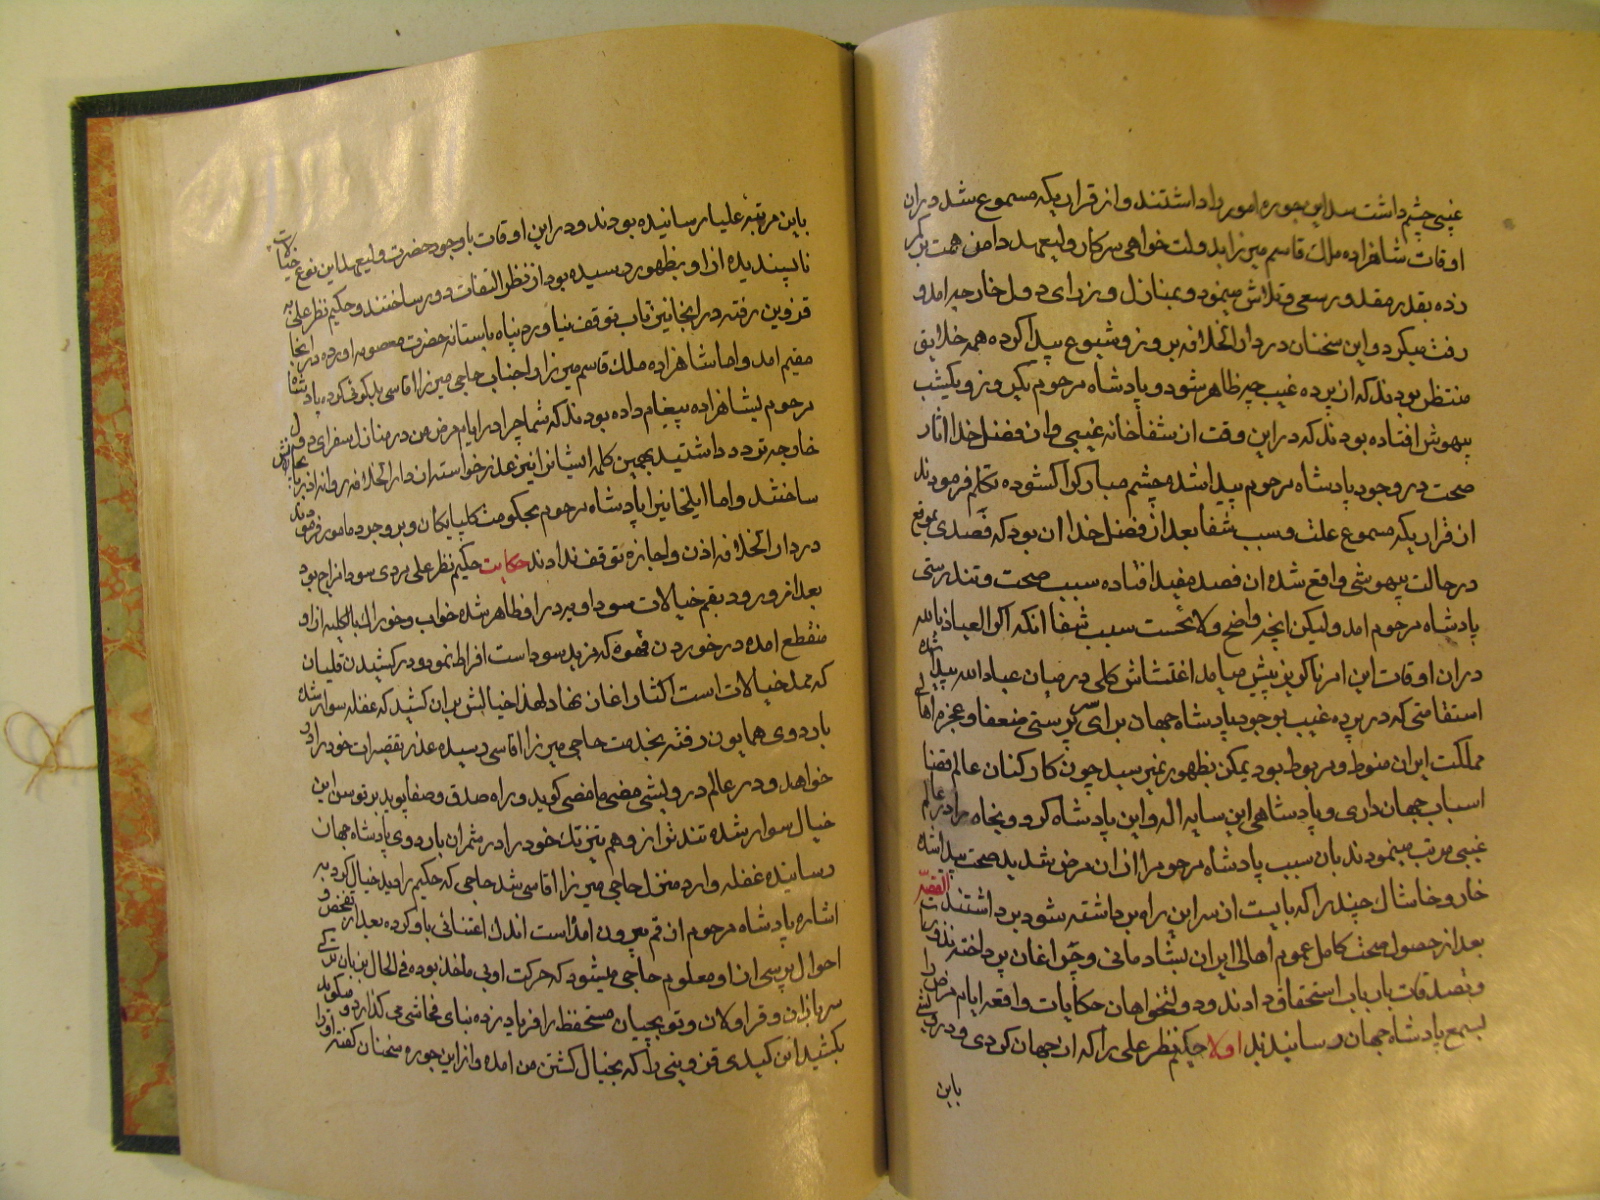 غیبی چشم داشت سد این جوره امور را داشتند و از قراریکه مسموع شد در ان
اوقات شاهزاده ملک قاسم میرزا بدولت خواهی سرکار ولیعهد دامن همت بر کمر
زده بقدر مقدور سعی و تلاش مینمود و بمنازل وزرای دول خارجه امد و
رفت میکرد و این سخنان در دار الخلافه بروز و شیوع پیدا کرده همه خلایق
منتظر بودند که از پرده غیب چه ظاهر شود و پادشاه مرحوم یکروز و یکشب
بیهوش افتاده بودند که در این وقت از شفاخانه غیبی و از فضل خدا اثار
صحت در وجود پادشاه مرحوم پیدا شده چشم مبارکرا کشوده تکلم فرمودند
از قراریکه مسموع علت و سبب شفا بعد از فضل خدا ان بود که فصدی بموقع
در حالت بیهوشی واقع شده ان فصد مفید افتاده سبب صحت و تندرستی
پادشاه مرحوم امد و لیکن انچه واضح و لایحست سبب شفا انکه اکر العیاذ بالله
در ان اوقات این امر ناکزیر پیش میامد اغتشاش کلی در میان عباد الله پیدا شده
استقامتی که در پرده غیب بوجود پادشاه جهان برای سرپرستی ضعفا و عجزه اهالی
مملکت ایران منوط و مربوط بود یمکن بظهور نمیرسید چون کارکنان عالم قضا
اسباب جهان داری و پادشاهی این سایه اله و این پادشاه کردون جاه را در عالم
غیبی مرتب مینمودند بان سبب پادشاه مرحوم را از ان مرض شدید صحت پیدا شده
خار و خاشاک چند را که بایست از سر این راه برداشته شود برداشتند القصه
بعد از حصول صحت کامل عموم اهالی ایران بشادمانی و چراغان پرداخته نذورات
و تصدقات بارباب استحقاق دادند و دولتخواهان حکایات واقعه ایام مرض را
بسمع پادشاه جهان رسانیدند اولا حکیم نظر علی را که از جهان کردی و درویشی
باین
باین مرتبه علیا رسانیده بودند و در این اوقات با وجود حضرت ولیعهد این نوع خیالات
ناپسندیده از او بظهور رسیده بود از نظر التفات دور ساختند و حکیم نظر علی به
قزوین رفته در انجا نیز تاب توقف نیاورد پناه باستانه حضرت معصومه اورده در انجا
مقیم امد و اما شاهزاده ملک قاسم میرزا و جناب حاجی میرزا اقاسی بدکوئی کرده پادشاه
مرحوم بشاهزاده پیغام داده بودند که شما چرا در ایام مرض من در منازل سفرای دول
خارجه تردد داشتید بهمین کلمه ایشانرا نیز عذر خواسته از دار الخلافه روانه اذربایجانش
ساختند و اما ایلخانیرا پادشاه مرحوم بحکومت کلپایکان و بروجرد مامور فرمودند
در دار الخلافه اذن و اجازه توقف ندادند حکایت حکیم نظر علی مردی سودا مزاج بود
بعد از ورود بقم خیالات سوداویه در او ظاهر شده خواب و خوراک بالکلیه از او
منقطع امده در خوردن قهوه که مزید سوداست افراط نمود و در کشیدن قلیان
که ممد خیالات است اکثار اغاز نهاد لهذا خیالش بر ان کشید که غفله سوار شده
باردوی همایون رفته بخدمت حاجی میرزا اقاسی رسیده عذر تقصیرات خود را
خواهد و در عالم درویشی مضی ما مضی کوید و راه صدق و صفا پوید بر توسن این
خیال سوار شده تندتر از وهم تیز تک خود را در شمران باردوی پادشاه جهان
رسانیده غفله وارد منزل حاجی میرزا اقاسی شد حاجی که حکیم را دید خیال کرد به
اشاره پادشاه مرحوم از قم بیرون امد است اندک اعتنائی باو کرده بعد از تفحص و
احوال پرسی از او معلوم حاجی میشود که حرکت او بی ماخذ بوده فی الحال بزبان ترکی
سربازان و قراولان و توپچیان مستحفظ را فریاد زده بنای فحاشی می کذارد و میکوید
بکشید این کیدی قزوینی را که بخیال کشتن من امده و از این جوره سخنان کفته او را